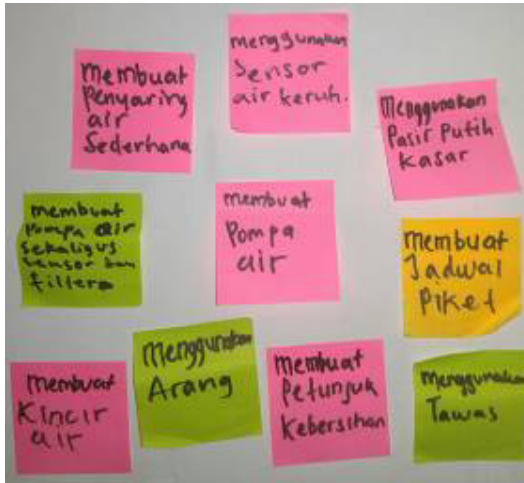 Membuat
Penyaring
air
Sederhana
menggunakan
Sensor
air keruh.
Menggunakan
Pasir Putih
Kasar
membuat
pompa air
sekaligus
sensor dan
filtero
membuat
Pompa
air
Membuat
Jadwal
Piket
membuat
Kincir
air
Menggunakan
Arang
Membuat
Petunjuk
Kebersihan
Menggunakan
Tawas